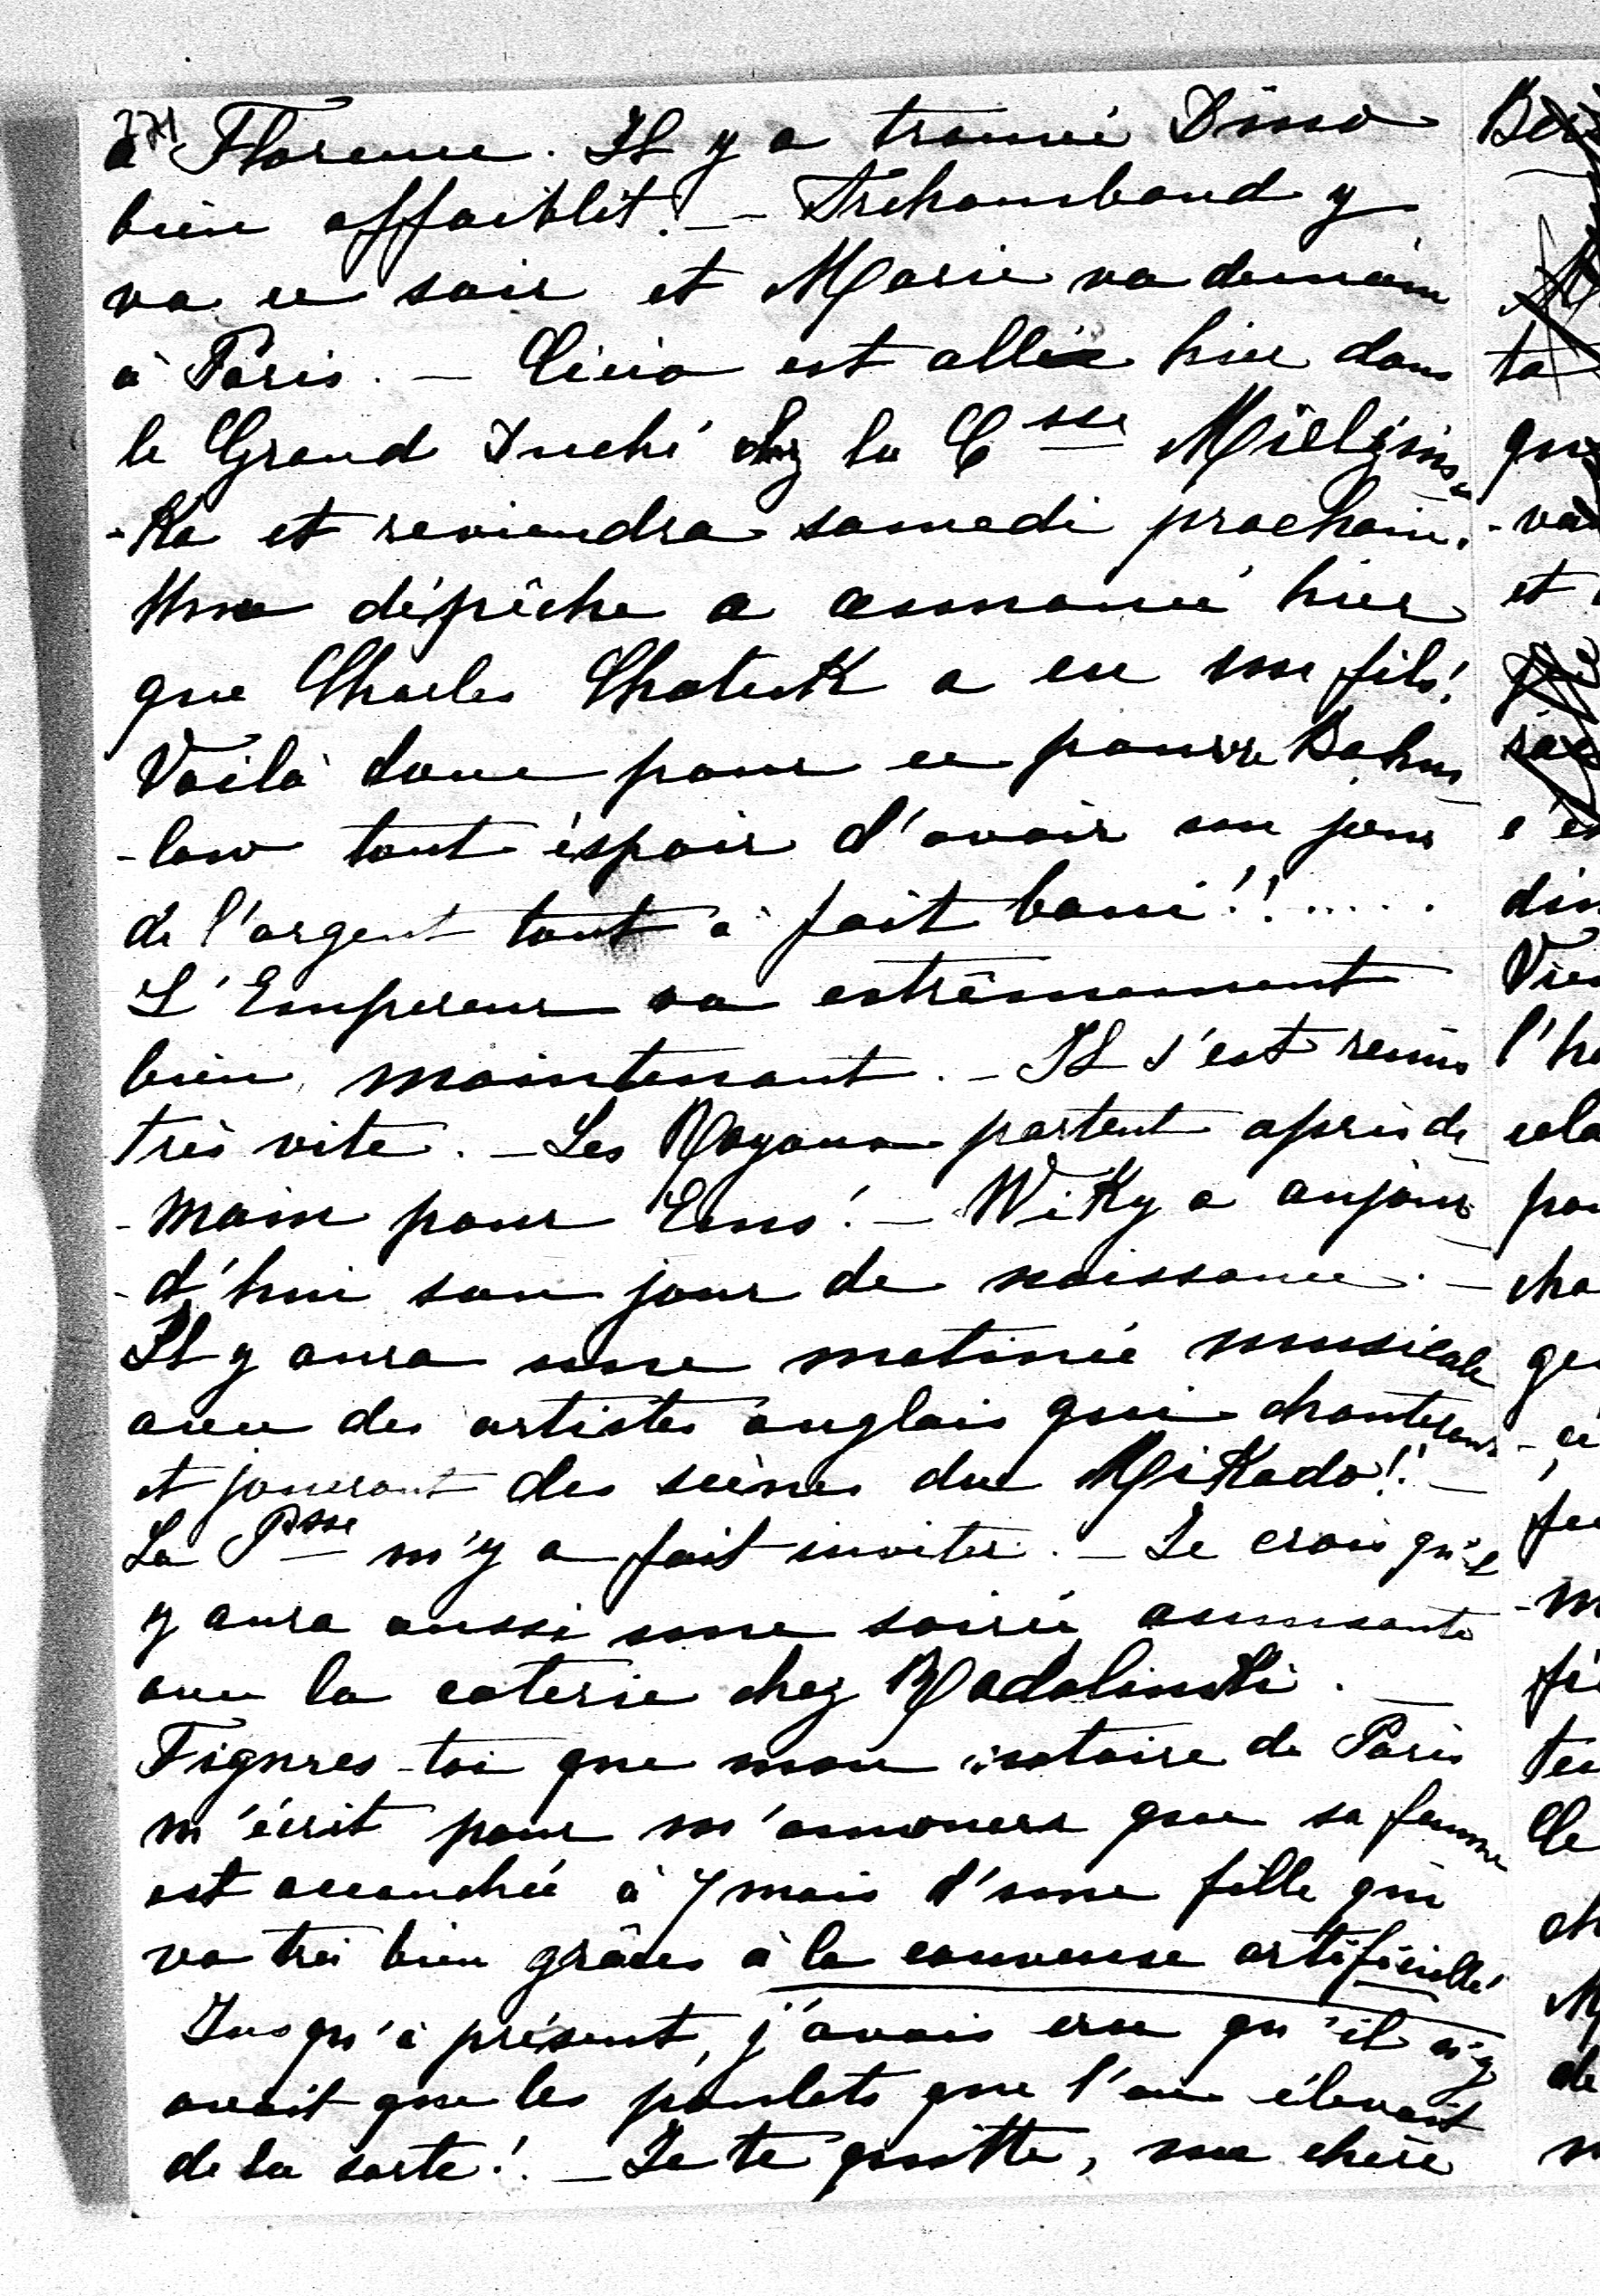 à Florence. Il y a trouvé Dino
bien affaiblit! – Trehombaud y
va ce soir et Marie va demain
à Paris. – Cicio est allée hier dans
le Grand Duché chez la Csse Mielzins-
-Ka et reviendra samedi prochain.
Une dépêche a annoncé hier
que Charles ChotecK a eu un fils!
Voilà donc pour ce pauvre Bahns
-law tout éspoir d'avoir un jour
de l'argent tout à fait bani!! .....
L'Empereur va extrêmement
bien maintenant. – Il s'est remis
très vite. – Les Royaux partent après de
-main pour Ems! – WiKy a aujour
-d'hui son jour de naissance. –
Il y aura une matinée musicale
avec des artistes anglais qui chanteront
et joueront des scènes du MiKado!! –
La Psse m'y a fait inviter. – Je crois qu'il
y aura aussi une soirée amusante
avec la coterie chez RadolinsKi. –
Figures-toi que mon notaire de Paris
m'écrit pour m'annoncer que sa femme
est accouchée à 7 mois d'une fille qui
va très bien grâces à la couveuse artificielle!
Jusqu'à présent, j'avais cru qu'il n'y
avait que les poulets que l'on élevait
de la sorte! – Je te quitte, ma chère